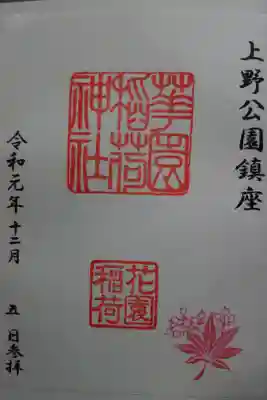 上野公園鎮座
華園
稲荷
神社
花園
稲荷
令和元年十二月 五 日参拝